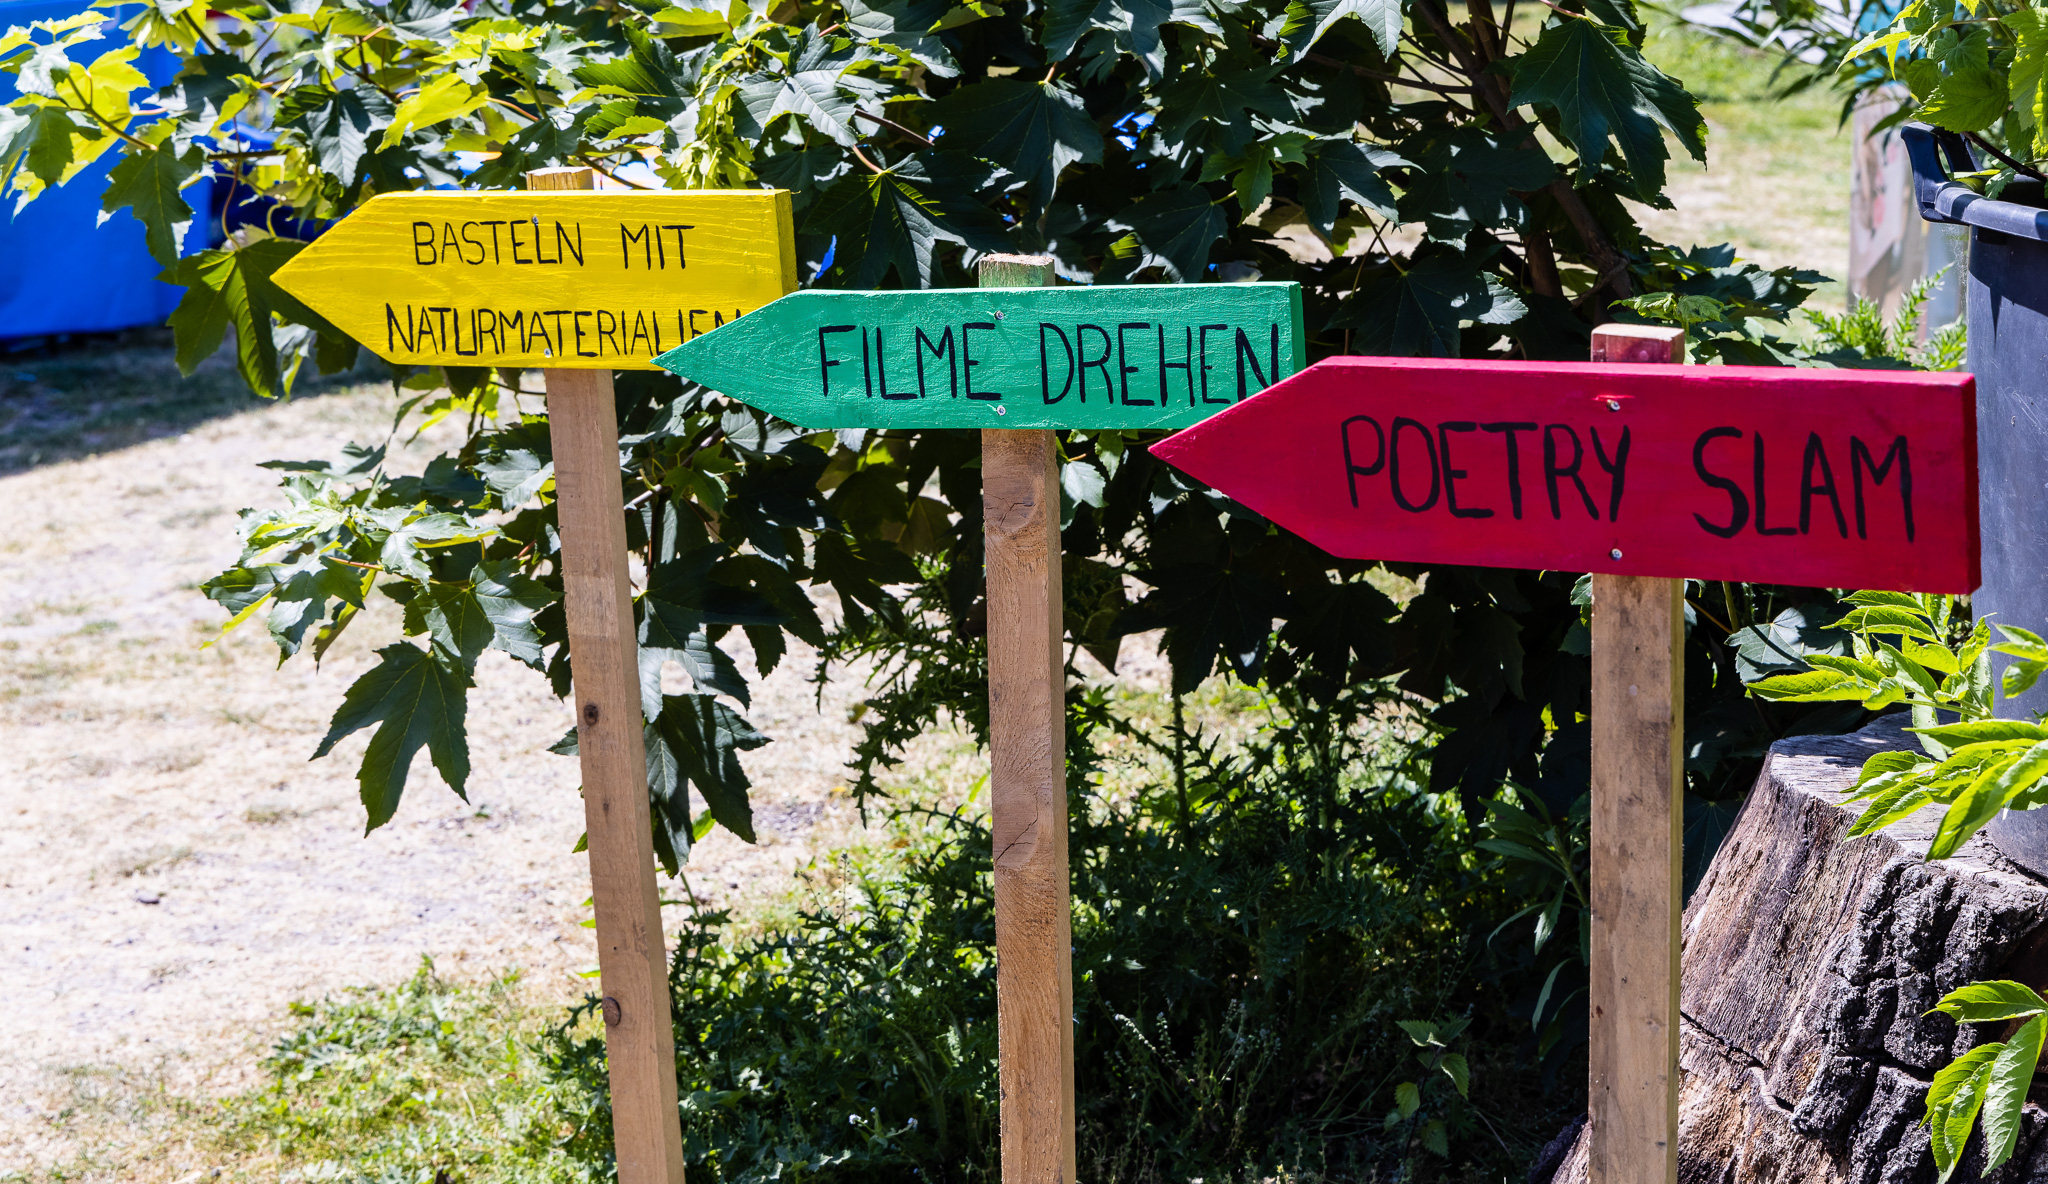 BASTELN MIT
NATURMATERIALIEN
FILME DREHEN
POETRY SLAM